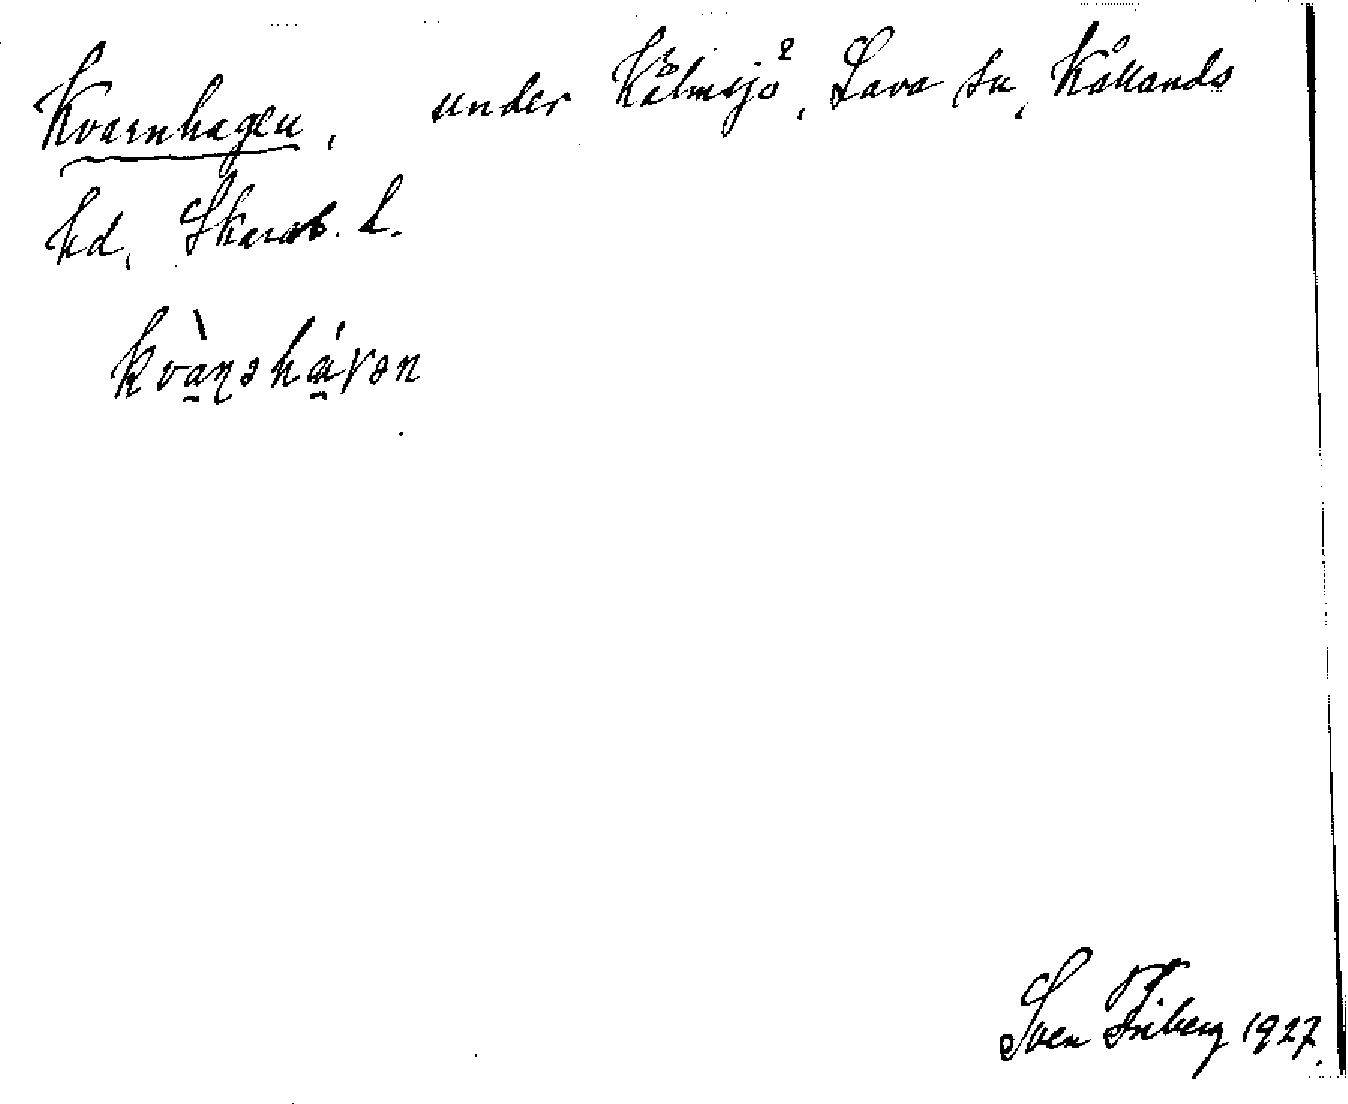 Kvarnhagen, under Kålmsjö², Lava sn, Kållands
hd, Skarab. L.
kvàṇəháγən
Sven Friberg 1927.